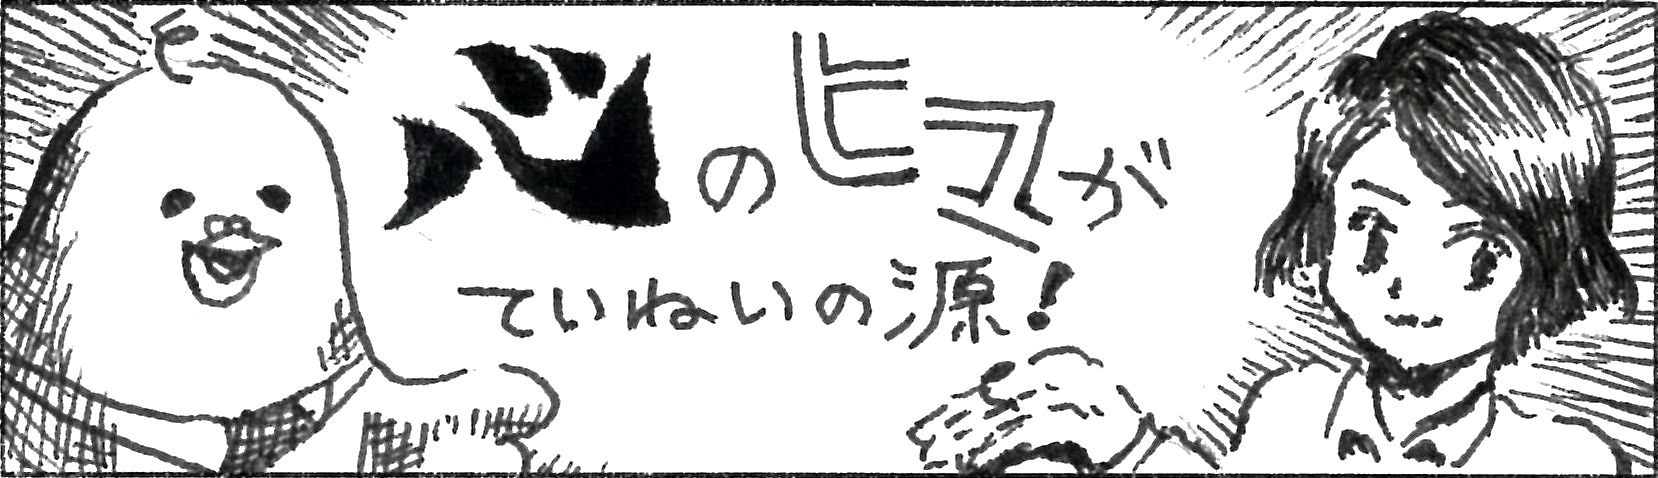 心のヒマが
ていねいの源!